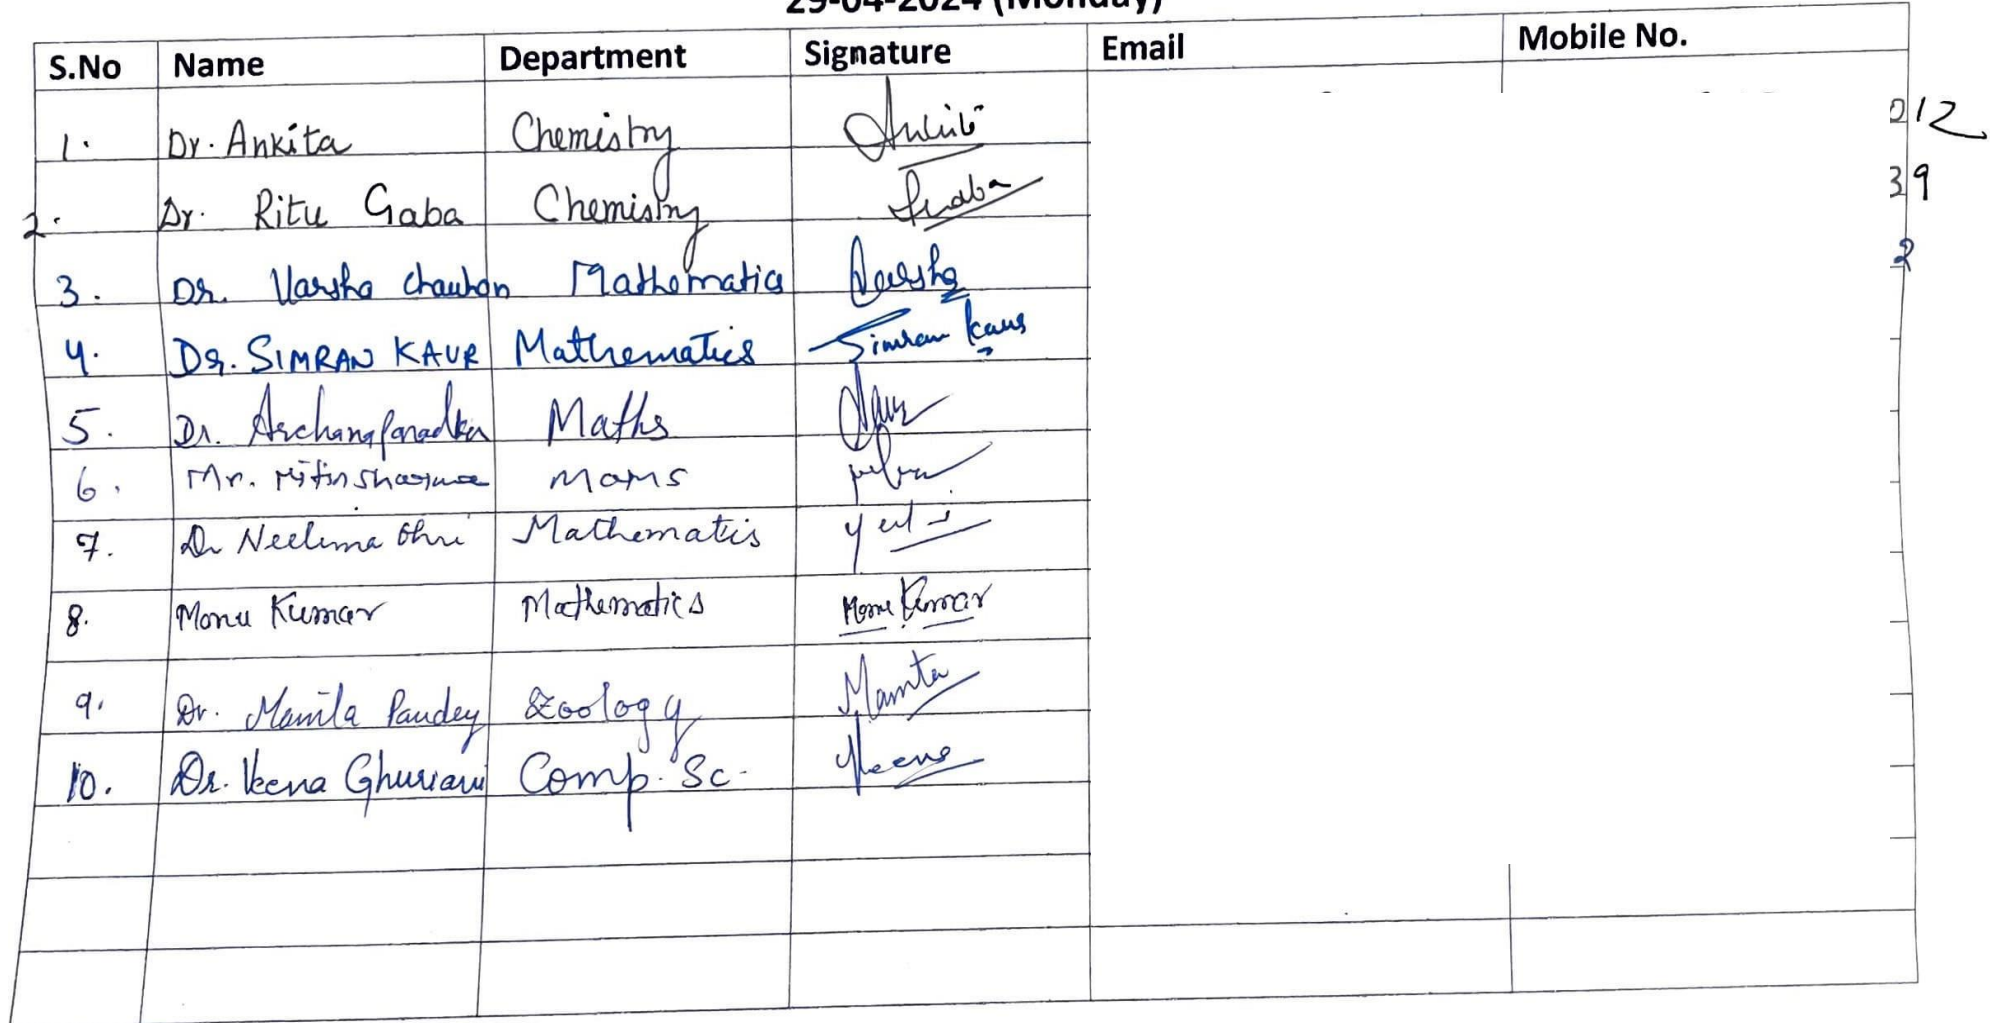 29-04-2024 (Monday)
S.No Name Department Signature Email Mobile No.
1. Dr. Ankita Chemistry 012
2. Dr. Ritu Gaba Chemistry 39
3. Dr. Varsha Chauhan Mathematics Varsha 2
4. Dr. SIMRAN KAUR Mathematics Simran Kaur
5. Dr. Archana Maths
6. Mr. Nitin Sharma
7. Dr Neelima Ohri Mathematis
8. Monu Kumar Mathematics Monu Kumar
9. Dr. Pandey Zoology Mamta
10. Dr. Veena Ghuriani Comp. Sc. Veena